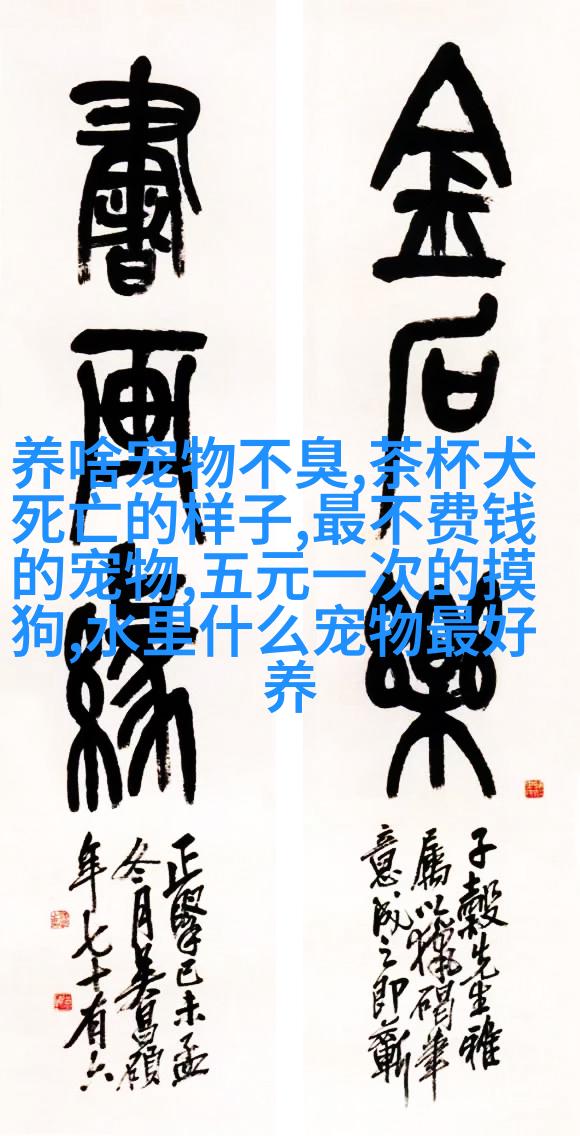 金石樂
子穀先生雅
屬以獵碣筆
意成之即蘄
書畫緣
正己未孟
冬月吳昌碩
年七十有六
养啥宠物不臭,茶杯犬
死亡的样子,最不费钱
的宠物,五元一次的摸
狗,水里什么宠物最好
养